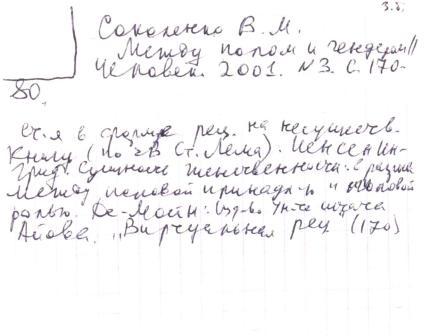 3.8.
Соколенко В. М.
Между полом и гендером//
Человек. 2001. №3. С. 170-
80.
ст-я в форме рец. на несуществ.
Книгу (по Ст. Лема). Йенсен Ин-
грид. Сущность женственности:
между половой принадл-ю и половой
ролью. Де-Мойн: Изд-во Ун-та штата
Айова. „Виртуальная рец (170)